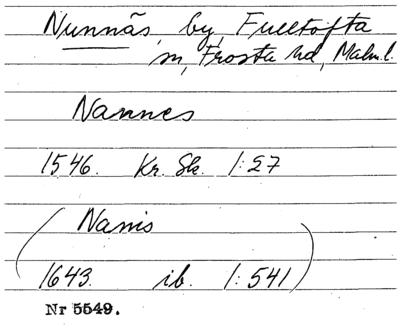 Nunnäs, by, Fulltofta
sn, Frosta hd, Malm.l.
Nannes
1546. Kr. Sk. 1:27
(Nanis
1643. ib. 1:541)
Nr 5549.